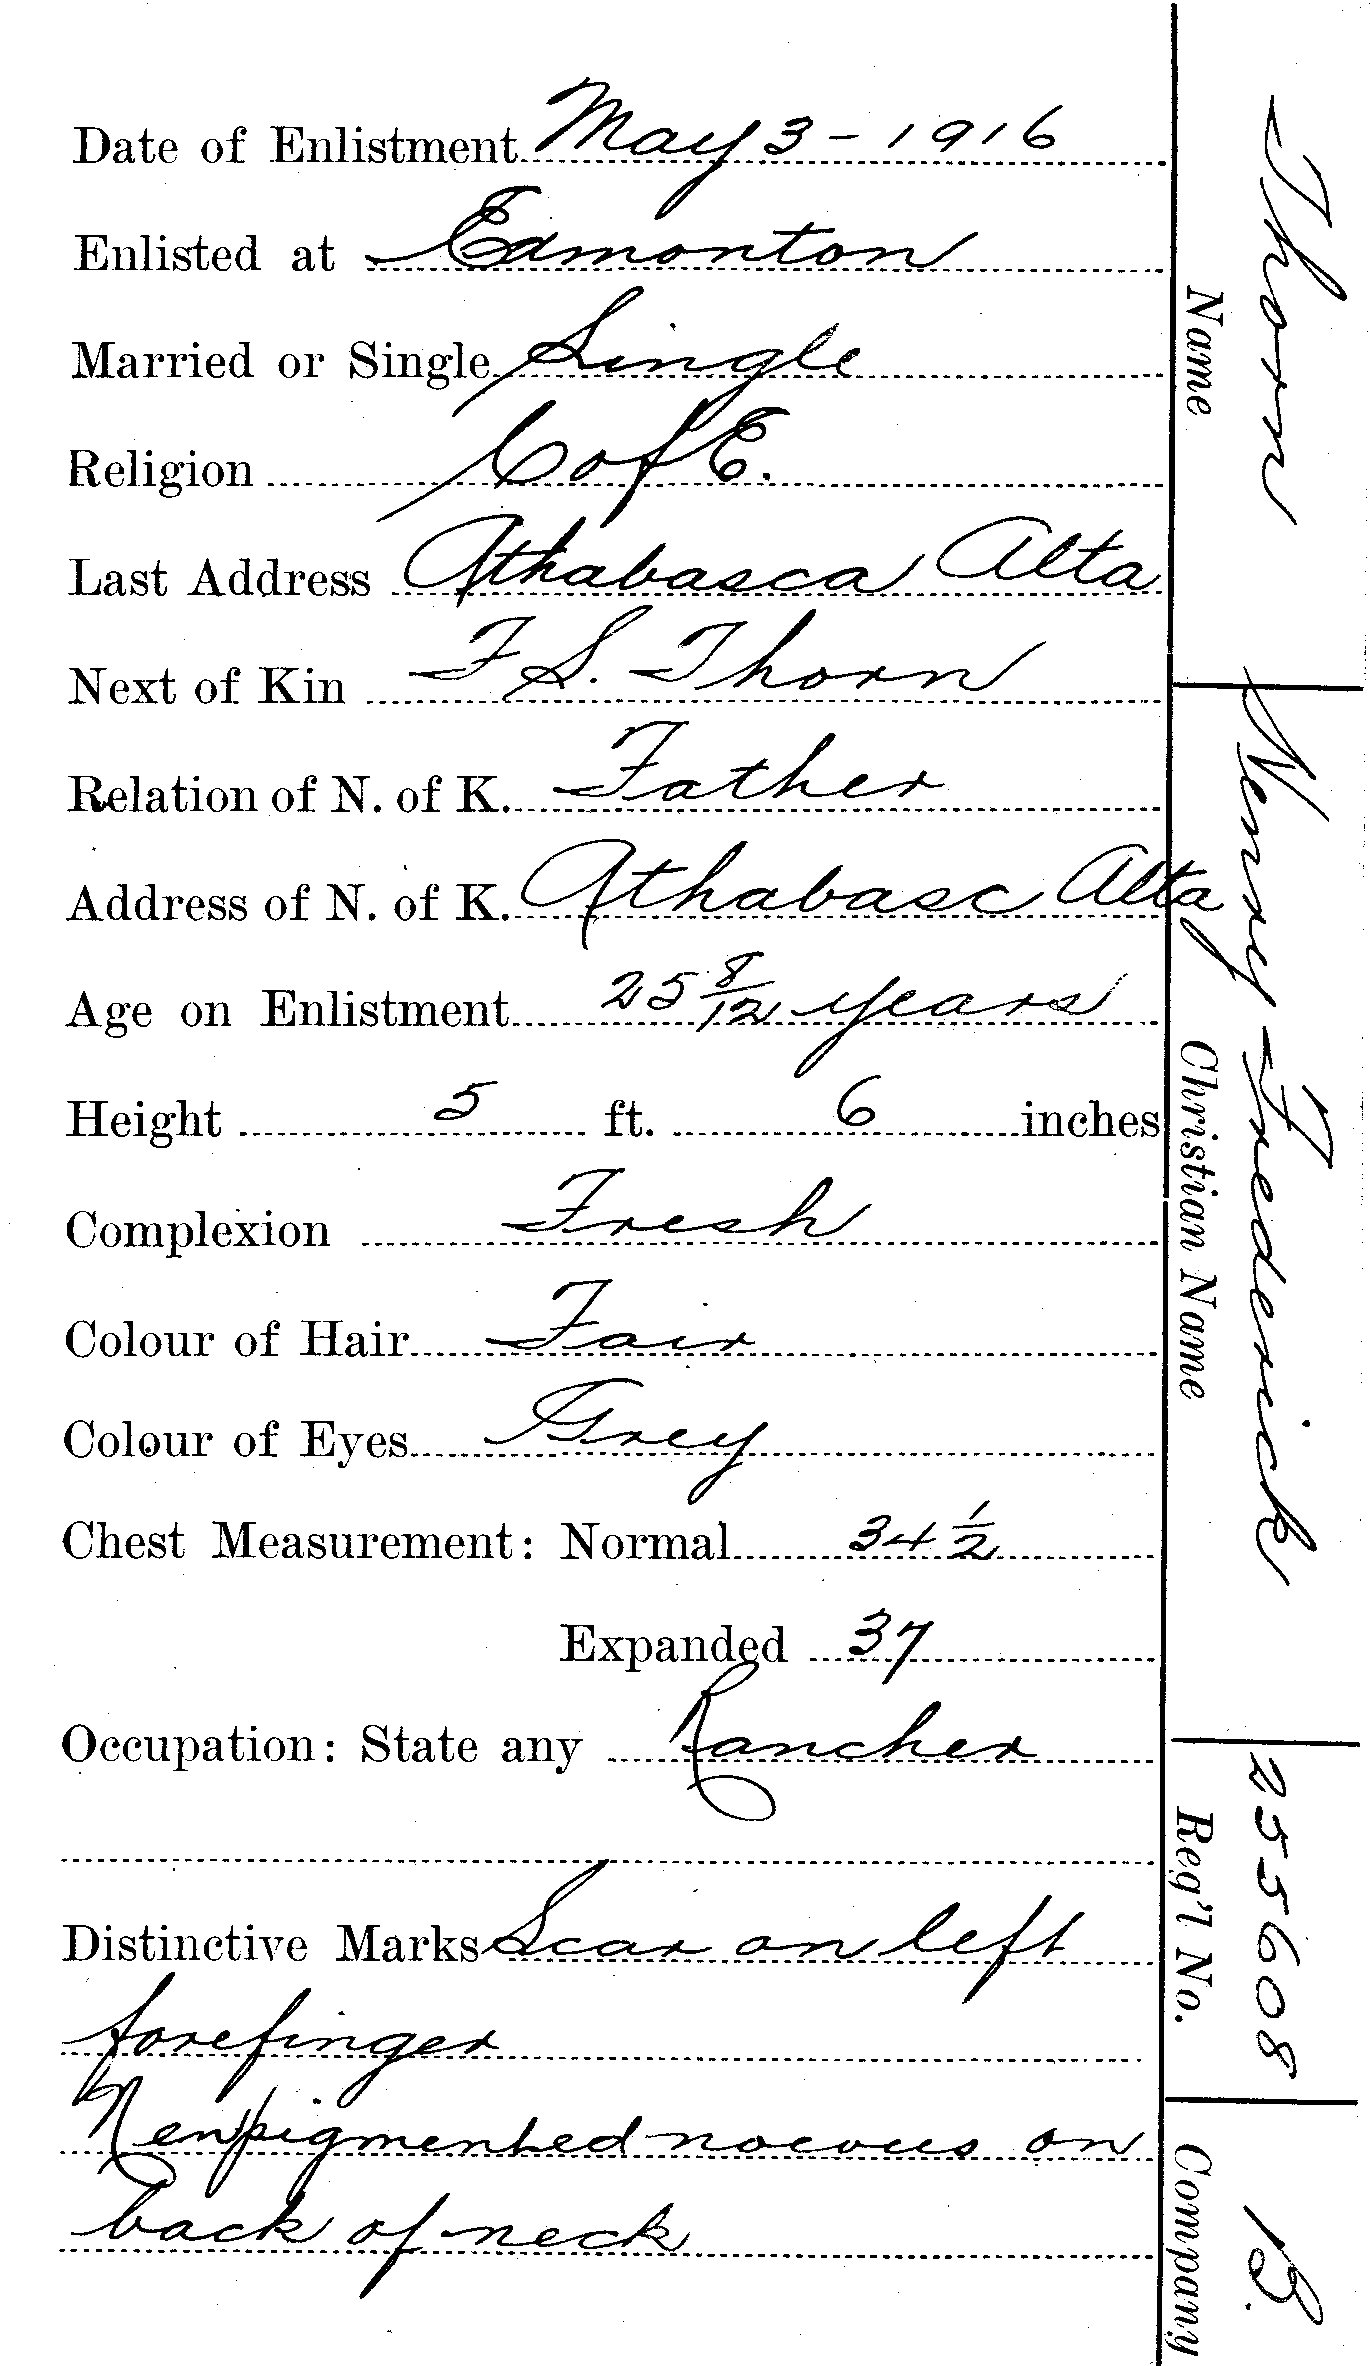 Date of Enlistment May 3 - 1916
Enlisted at Edmonton
Married or Single Single
Religion C of E.
Last Address Athabasca Alta
Next of Kin F S. Thorn
Relation of N. of K. Father
Address of N. of K. Athabasc Alta
Age on Enlistment 25 8/12 years
Height 5 ft. 6 inches
Complexion Fresh
Colour of Hair Fair
Colour of Eyes Grey
Chest Measurement: Normal 34 1/2
Expanded 37
Occupation: State any Rancher
Distinctive Marks Scar on left
forefinger
Nenpigmented noevus on
back of neck
Thorn
Name
Henry Frederick
Christian Name
255608
Reg'l No.
B.
Company